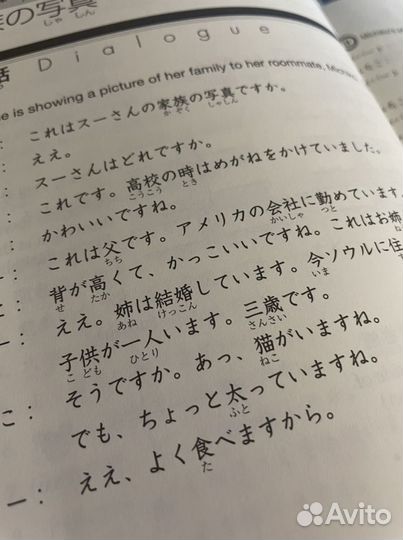 の写真
しゃ しん
Dialogue
is showing a picture of her family to her roommate,
: これはスーさんの家族の写真ですか。
か ぞく しゃしん
: ええ。
: スーさんはどれですか。
: これです。高校の時はめがねをかけていました。
こうこう とき
: かわいいですね。
: これは父です。アメリカの会社に勤めています。
ちち かいしゃ つと
背が高くて、かっこいいですね。これはお姉
せ たか ねえ
ー : ええ。姉は結婚しています。今ソウルに住
あね けっこん いま す
子供が一人います。三歳です。
こ ども ひとり さんさい
こ : そうですか。あっ、猫がいますね。
ねこ
でも、ちょっと太っていますね。
ふと
ー : ええ、よく食べますから。
た
Avito